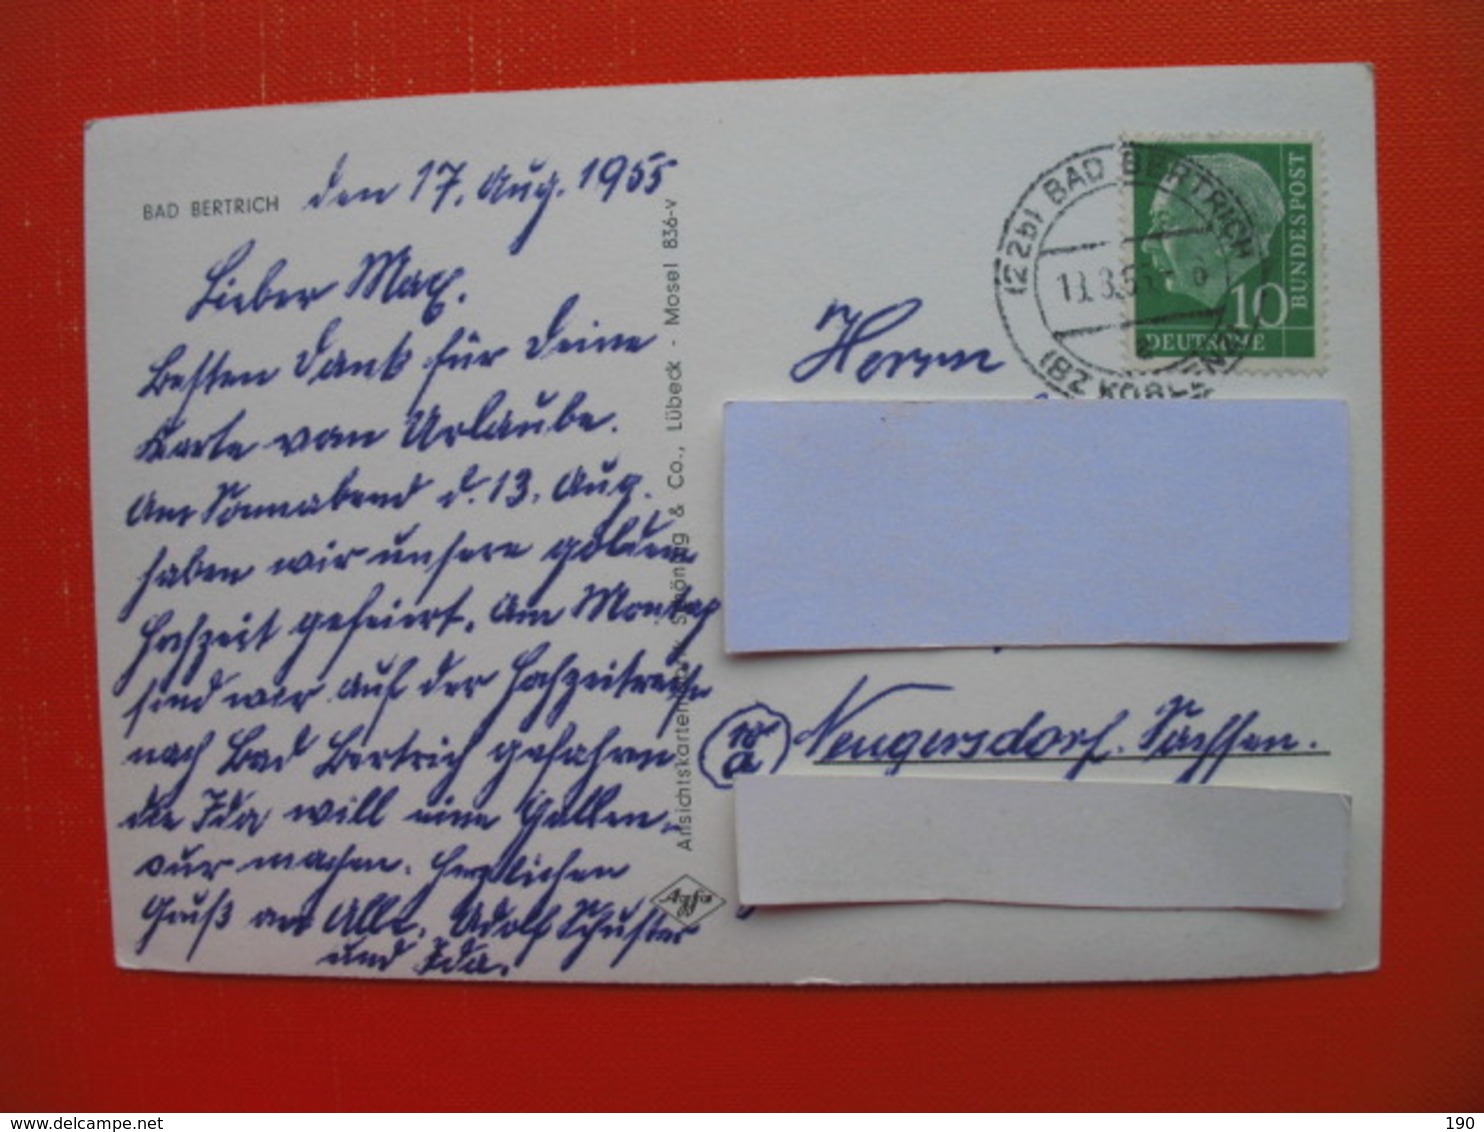 BAD BERTRICH
den 17. Aug. 1955
Lieber Max.
Besten Dank für Deine
Karte vom Urlaube.
Am Sonnabend d. 13. Aug.
haben wir unsere goldene
Hochzeit gefeiert. Am Montag
sind wir auf der Hochzeitreise
nach Bad Bertrich gefahren
die Ida will eine Gallen-
kur machen. Herzlichen
Gruß an Alle. Adolf Schuster
und Ida.
Ansichtskarten Schöning & Co., Lübeck - Mosel 836-V
Agfa
(22b) BAD BERTRICH
(BZ KOBLENZ)
DEUTSCHE
BUNDESPOST
10
Herrn
10
a
Neugersdorf. Sachsen.
delcampe.net
190